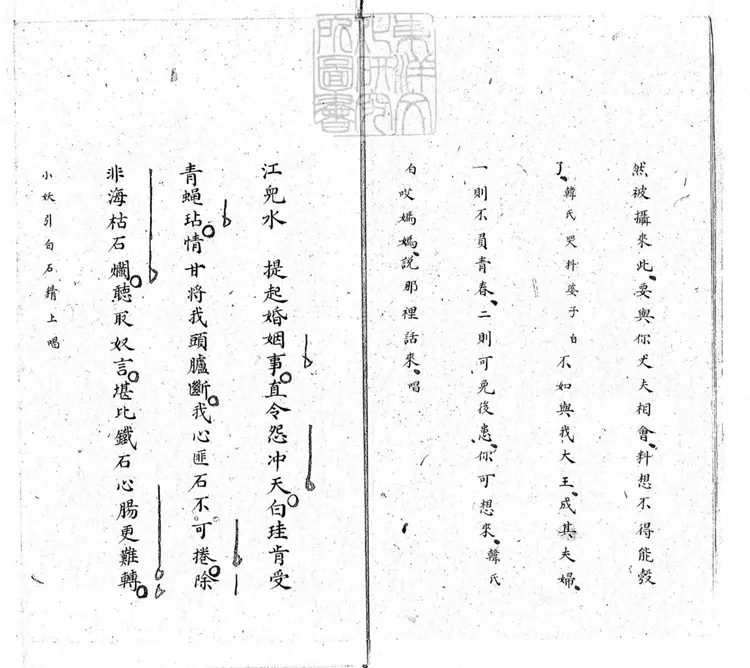 然被攝來此、要與你丈夫相會、料想不得能彀
了、韓氏哭科婆子白不如與我大王、成其夫婦、
一則不負青春、二則可免後患、你可想來、韓氏
白哎媽媽、說那裡話來、唱
江兒水　提起婚姻事直令怨冲天白珪肯受
青蠅玷情甘將我頭臚斷我心匪石不可捲除
非海枯石爛聽取奴言堪比鐵石心腸更難轉
小妖引白石精上唱
東洋文化研究所圖書